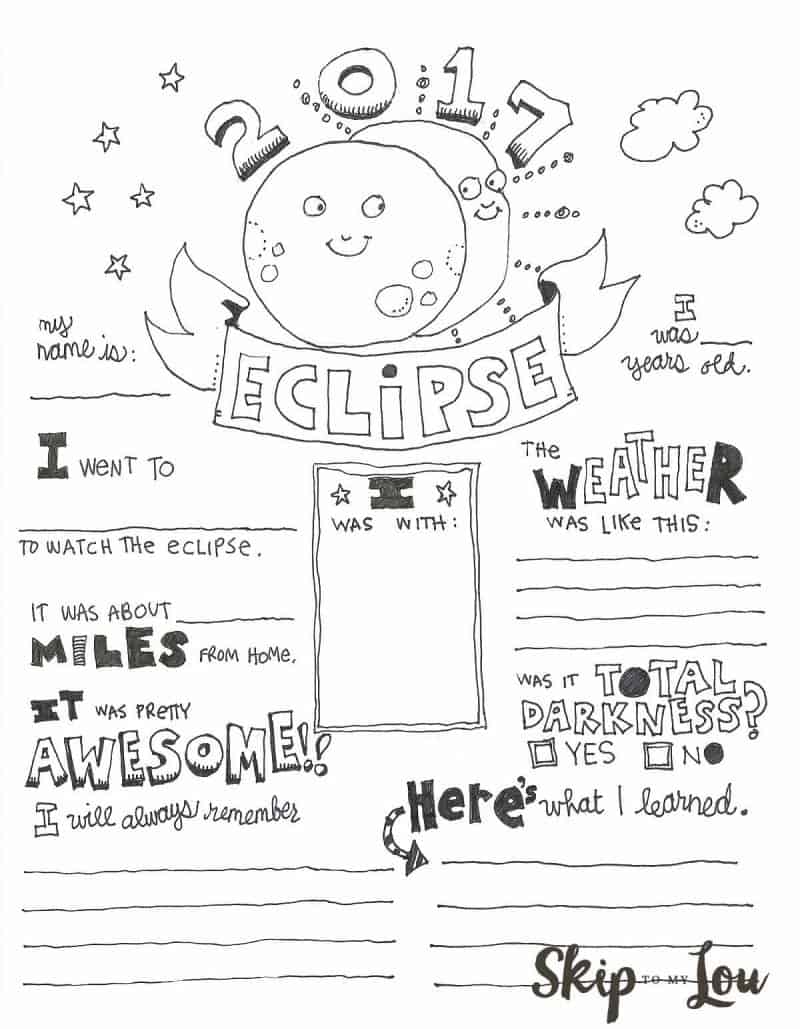 2017
ECLIPSE
my
name is:
I
was
years old.
I WENT TO
TO WATCH THE ECLIPSE.
IT WAS ABOUT
MILES FROM HOME.
IT WAS PRETTY
AWESOME!!
I will always remember
I
WAS WITH:
THE
WEATHER
WAS LIKE THIS:
WAS IT TOTAL
DARKNESS?
YES NO
Here's what I learned.
Skip TO MY Lou